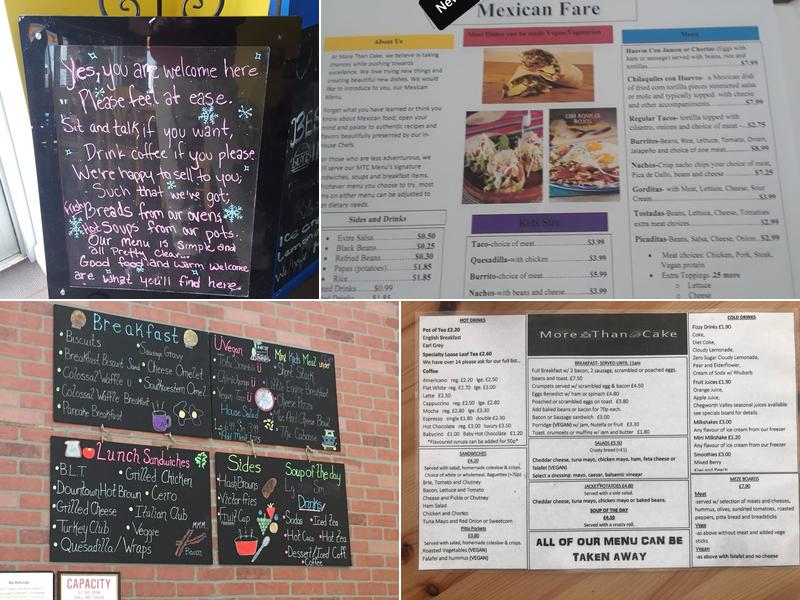 Yes, you are welcome here
Please feel at ease.
Sit and talk if you want,
Drink coffee if you please
We're happy to sell to you;
Such that we've got:
Fresh Breads from our ovens
Hot soups from our pots.
Our menu is simple and
all Pretty Clear
Good food and warm welcome
are what you'll find here.
Mexican Fare
About Us
At More Than Cake, we believe in taking
chances while pushing towards
excellence. We love trying new things and
creating beautiful new dishes. We would
like to introduce you, our Mexican
Menu.
Forget what you have learned or think you
know about Mexican food; open your
mind and palate to authentic recipes and
flavors beautifully presented by our in-
house Chefs.
For those who are less adventurous, we
will serve our MTC Menu's signature
sandwiches, soups and breakfast items.
Whichever menu you choose to try, most
items on either menu can be adjusted to
meet dietary needs.
Sides and Drinks
Extra Salsa $0.50
Black Beans $0.25
Refried Beans $0.30
Papas (potatoes) $1.85
Rice $1.85
Most Dishes can be made Vegan/Vegetarian
CHILAQUILES
Kids Size
Taco-choice of meat $3.99
Quesadilla-with chicken $3.99
Burrito-choice of meat $5.99
Nachos-with beans and cheese $3.99
Menu
Huevos Con Jamon or Chorizo (Eggs with
ham or sausage) served with beans, rice and
tortillas $7.99
Chilaquiles con Huevos- a Mexican dish
of fried corn tortilla pieces summered salsa
or mole and typically topped with cheese
and other accompaniments $7.99
Regular Tacos- tortilla topped with
cilantro, onions and choice of meat $2.75
Burritos-Beans, Rice, Lettuce, Tomato, Onion,
Jalapeño and choice of one meat $8.99
Nachos-Crisp nacho chips your choice of meat,
Pica de Gallo, beans and cheese $7.25
Gorditas- with Meat, Lettuce, Cheese, Sour
Cream $3.99
Tostadas-Beans, Lettuce, Cheese, Tomatoes
extra meat choices $2.99
Picaditas-Beans, Salsa, Cheese, Onion $2.99
Meat choices: Chicken, Pork, Steak,
Vegan protein
Extra Toppings .25 more
Lettuce
Cheese
Breakfast
Biscuits
Sausage Gravy
Breakfast Biscuit Sand
Cheese Omelet
Colossal Waffle
Southwestern Omelet
Colossal Waffle Breakfast
Pancake Breakfast
Vegan
House Salad
Mini Kids Menu
Short Stack
Little Engine Breakfast
Cheese Pizza
The Caboose
Lunch Sandwiches
BLT
Grilled Chicken
Downtown Hot Brown
Cerro
Grilled Cheese
Italian Club
Turkey Club
Veggie
Quesadilla/Wraps
MMM..
Bacon
Sides
Hash Browns
Victor fries
Fruit Cup
Soup of the day
Drinks
Sodas
Iced tea
Hot Coco
Hot tea
Dessert/Iced Coff
Coffee
No Refunds
CAPACITY
HOT DRINKS
Pot of Tea £2.20
English Breakfast
Earl Grey
Specialty Loose Leaf Tea £2.60
We have over 14 please ask for our full list...
Coffee
Americano reg. £2.20 lge. £2.50
Flat White reg. £2.70 lge. £3.00
Latte £2.50
Cappuccino reg. £2.50 lge. £2.80
Mocha reg. £2.80 lge. £3.30
Espresso single £1.80 double £2.30
Hot Chocolate reg. £3.00 luxury £3.50
Babycino £1.00 Baby Hot Chocolate £1.20
*Flavoured syrups can be added for 50p*
SANDWICHES
£4.20
Served with salad, homemade coleslaw & crisps.
Choice of white or wholemeal. Baguettes (+70p)
Brie, Tomato and Chutney
Bacon, Lettuce and Tomato
Cheese and Pickle or Chutney
Ham Salad
Chicken and Chorizo
Tuna Mayo and Red Onion or Sweetcorn
Pitta Pockets
£3.80
Served with salad, homemade coleslaw & crisps.
Roasted Vegetables (VEGAN)
Falafel and Hummus (VEGAN)
More Than Cake
BREAKFAST- SERVED UNTIL 11am
Full Breakfast w/ 2 bacon, 2 sausage, scrambled or poached eggs,
beans and toast. £7.50
Crumpets served w/ scrambled egg & bacon £4.50
Eggs Benedict w/ ham or spinach £4.80
Poached or scrambled eggs on toast £3.80
Add baked beans or bacon for 70p each.
Bacon or Sausage sandwich £3.00
Porridge (VEGAN) w/ jam, Nutella or fruit £3.30
Toast, crumpets or muffins w/ jam and butter £1.80
SALADS £5.50
Crusty bread (+£1)
Cheddar cheese, tuna mayo, chicken mayo, ham, feta cheese or
falafel (VEGAN)
Select a dressing: mayo, caesar, balsamic vinegar
JACKET POTATOES £4.80
Served with a side salad.
Cheddar cheese, tuna mayo, chicken mayo or baked beans.
SOUP OF THE DAY
£4.50
Served with a crusty roll.
ALL OF MY MENU CAN BE
TAKEN AWAY
COLD DRINKS
Fizzy Drinks £1.90
Coke,
Diet Coke,
Cloudy Lemonade,
Zero Sugar Cloudy Lemonade,
Pear and Elderflower,
Cream of Soda w/ Rhubarb
Fruit Juices £1.90
Orange Juice,
Apple Juice,
Chegworth Valley seasonal juices available
see specials board for details.
Milkshakes £3.00
Any flavour of ice cream from our freezer
Mini Milkshake £1.20
Any flavour of ice cream from our freezer
Smoothies £3.00
Mixed Berry
Kiwi and Peach
MEZE BOARDS
£7.90
Meat
-served w/ selection of meats and cheeses,
hummus, olives, mixed salad, roasted
peppers, pitta bread and breadsticks
Vege
-as above without meat and added vege
sticks
Vegan
-as above with falafel and no cheese